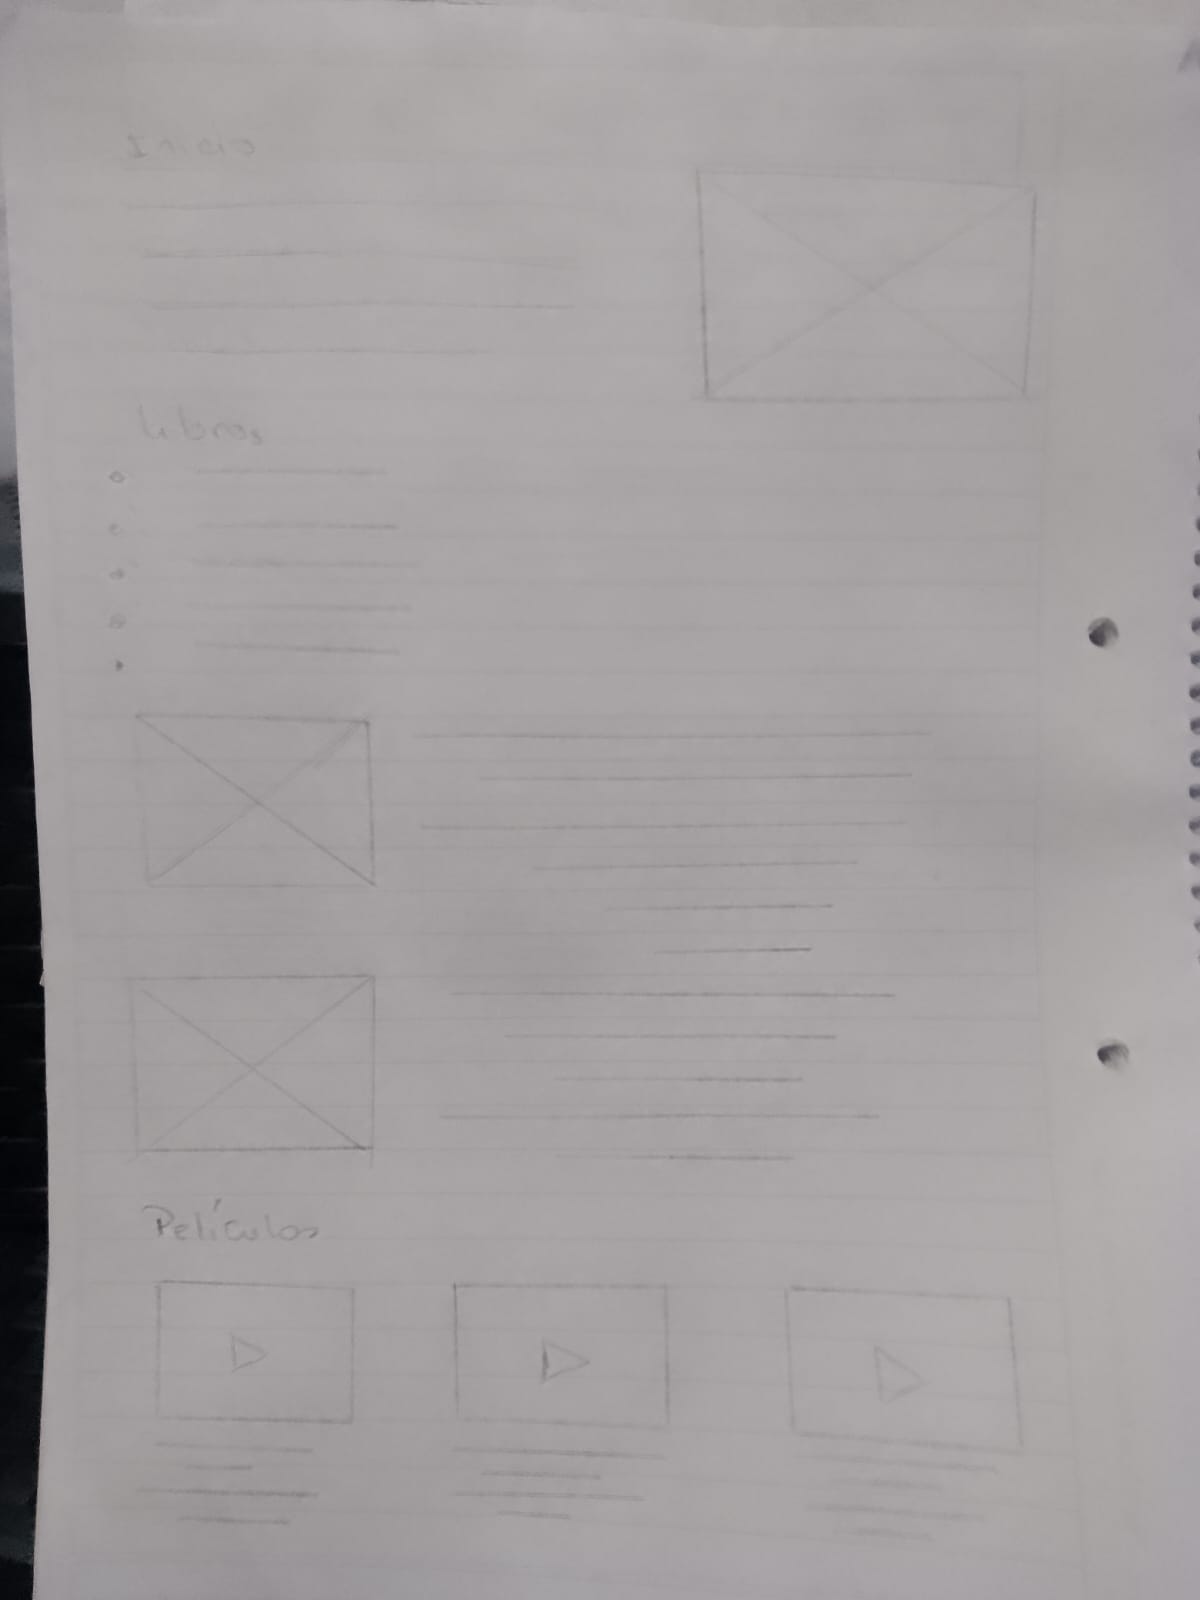 Inicio
Libros
Películas